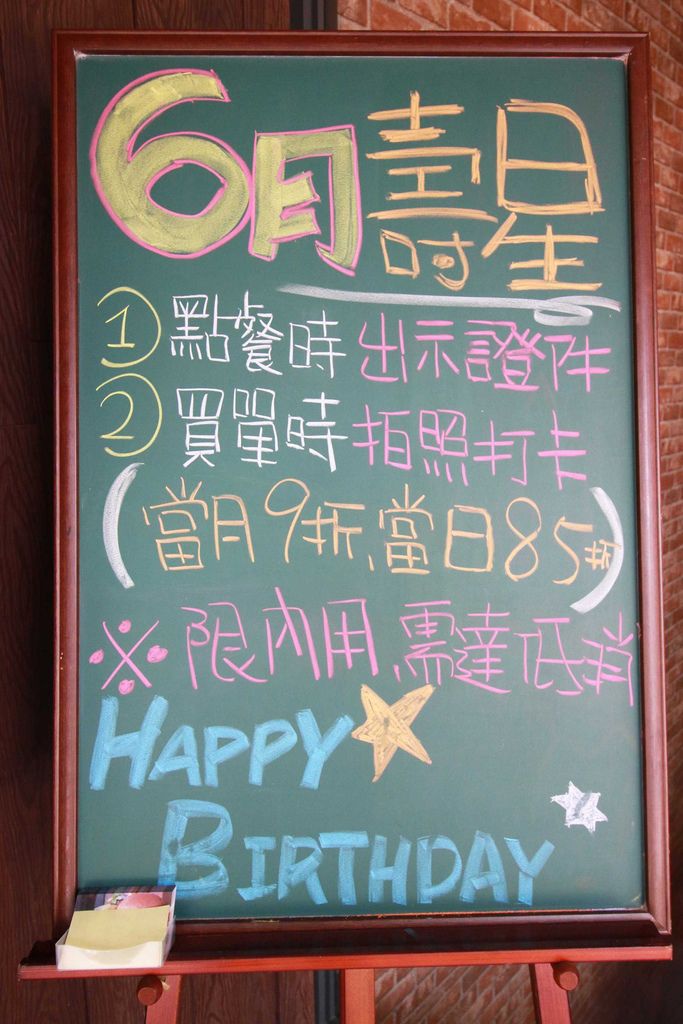 6月壽星
①點餐時出示證件
②買單時拍照打卡
(當月9折、當日85折)
※限內用、需達低消
HAPPY
BIRTHDAY